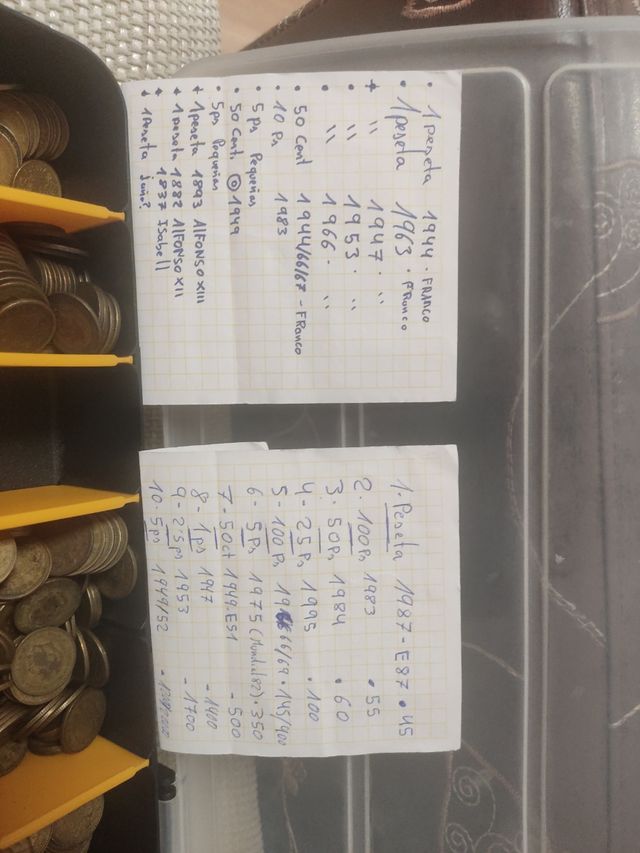 • 1 peseta 1944 • FRANCO
• 1 peseta 1963 • FRANCO
+ " 1947 • "
• " 1953 • "
• " 1966 • "
• 50 cent 1944/66/67 - FRANCO
• 10 Ps 1983
• 5 ps Pequeñas
• 50 cent. 1949
• 5ps Pequeñas
+ 1 peseta 1893 AlFONSO XIII
+ 1 peseta 1882 AlFONSO XII
+ 1837 Isabel II
+ 1 Peseta
1 - Peseta 1987 - E87 • 45
2 - 100 Ps 1983 • 55
3 - 50 Ps 1984 • 60
4 - 25 Ps 1995 • 100
5 - 100 Ps 1966 66/69 • 145/400
6 - 5 Ps 1975 (Mundial 82) • 350
7 - 50ct 1949 - E51 - 500
8 - 1 ps 1947 - 1400
9 - 25 ps 1953 - 1700
10 - 5 ps 1949/52